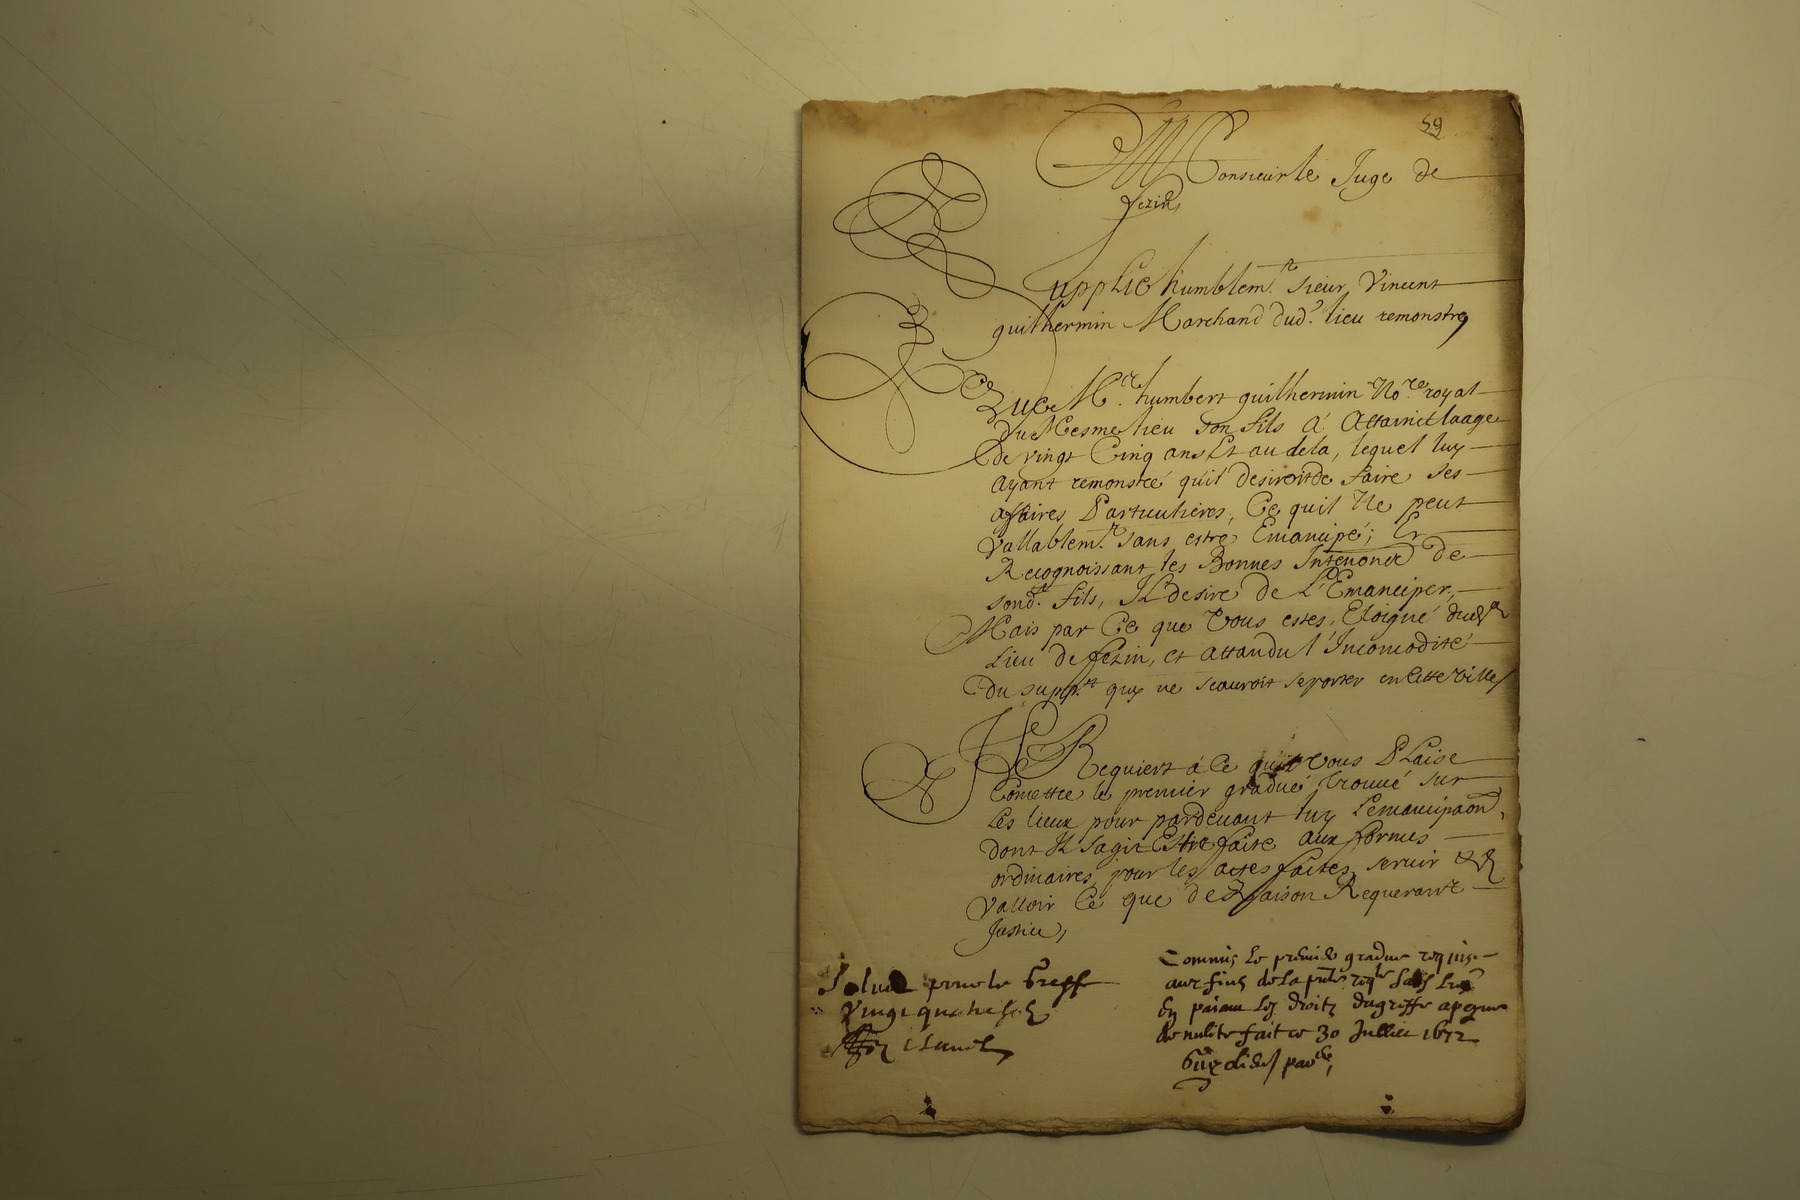 59
Monsieur le Juge de
fezin,
Supplie humblem.t sieur Vincent
guilhermin Marchand dud.t lieu remonstre
Que M.re humbert guilhermin No.re royal
du Mesme lieu son fils á Attainct laage
de vingt Cinq ans Et au dela, lequel luy
ayant remonstré quil desiroit de faire ses
affaires Particulieres, Ce quil Ne peut
vallablem.t sans estre Emancipé; Et
Recognoissant les Bonnes Intenons de
sond.t fils, Il desire de L'Emanciper,
Mais par Ce que Vous estes, Eloigné dud.t
Lieu de fezin, et attandu l'Incomodité
du supp.nt quy ne scauroit se porter en Cette ville
Il Requiert á Ce quil vous Plaise
Comettre le premier gradué trouué sur
Les lieux pour pardeuant luy L'emancipaon
dont Il sagit Estre faite aux formes
ordinaires, pour les actes faites, seruir &
valloir Ce que de Raison Requerant
Justice,
Commis le premier gradue requis
aux fins de la pnte reqte
en paiant les droitz du greffe a peyne
de nulite fait ce 30 Juillet 1672
Solut pour le Greffe
vingt quatre